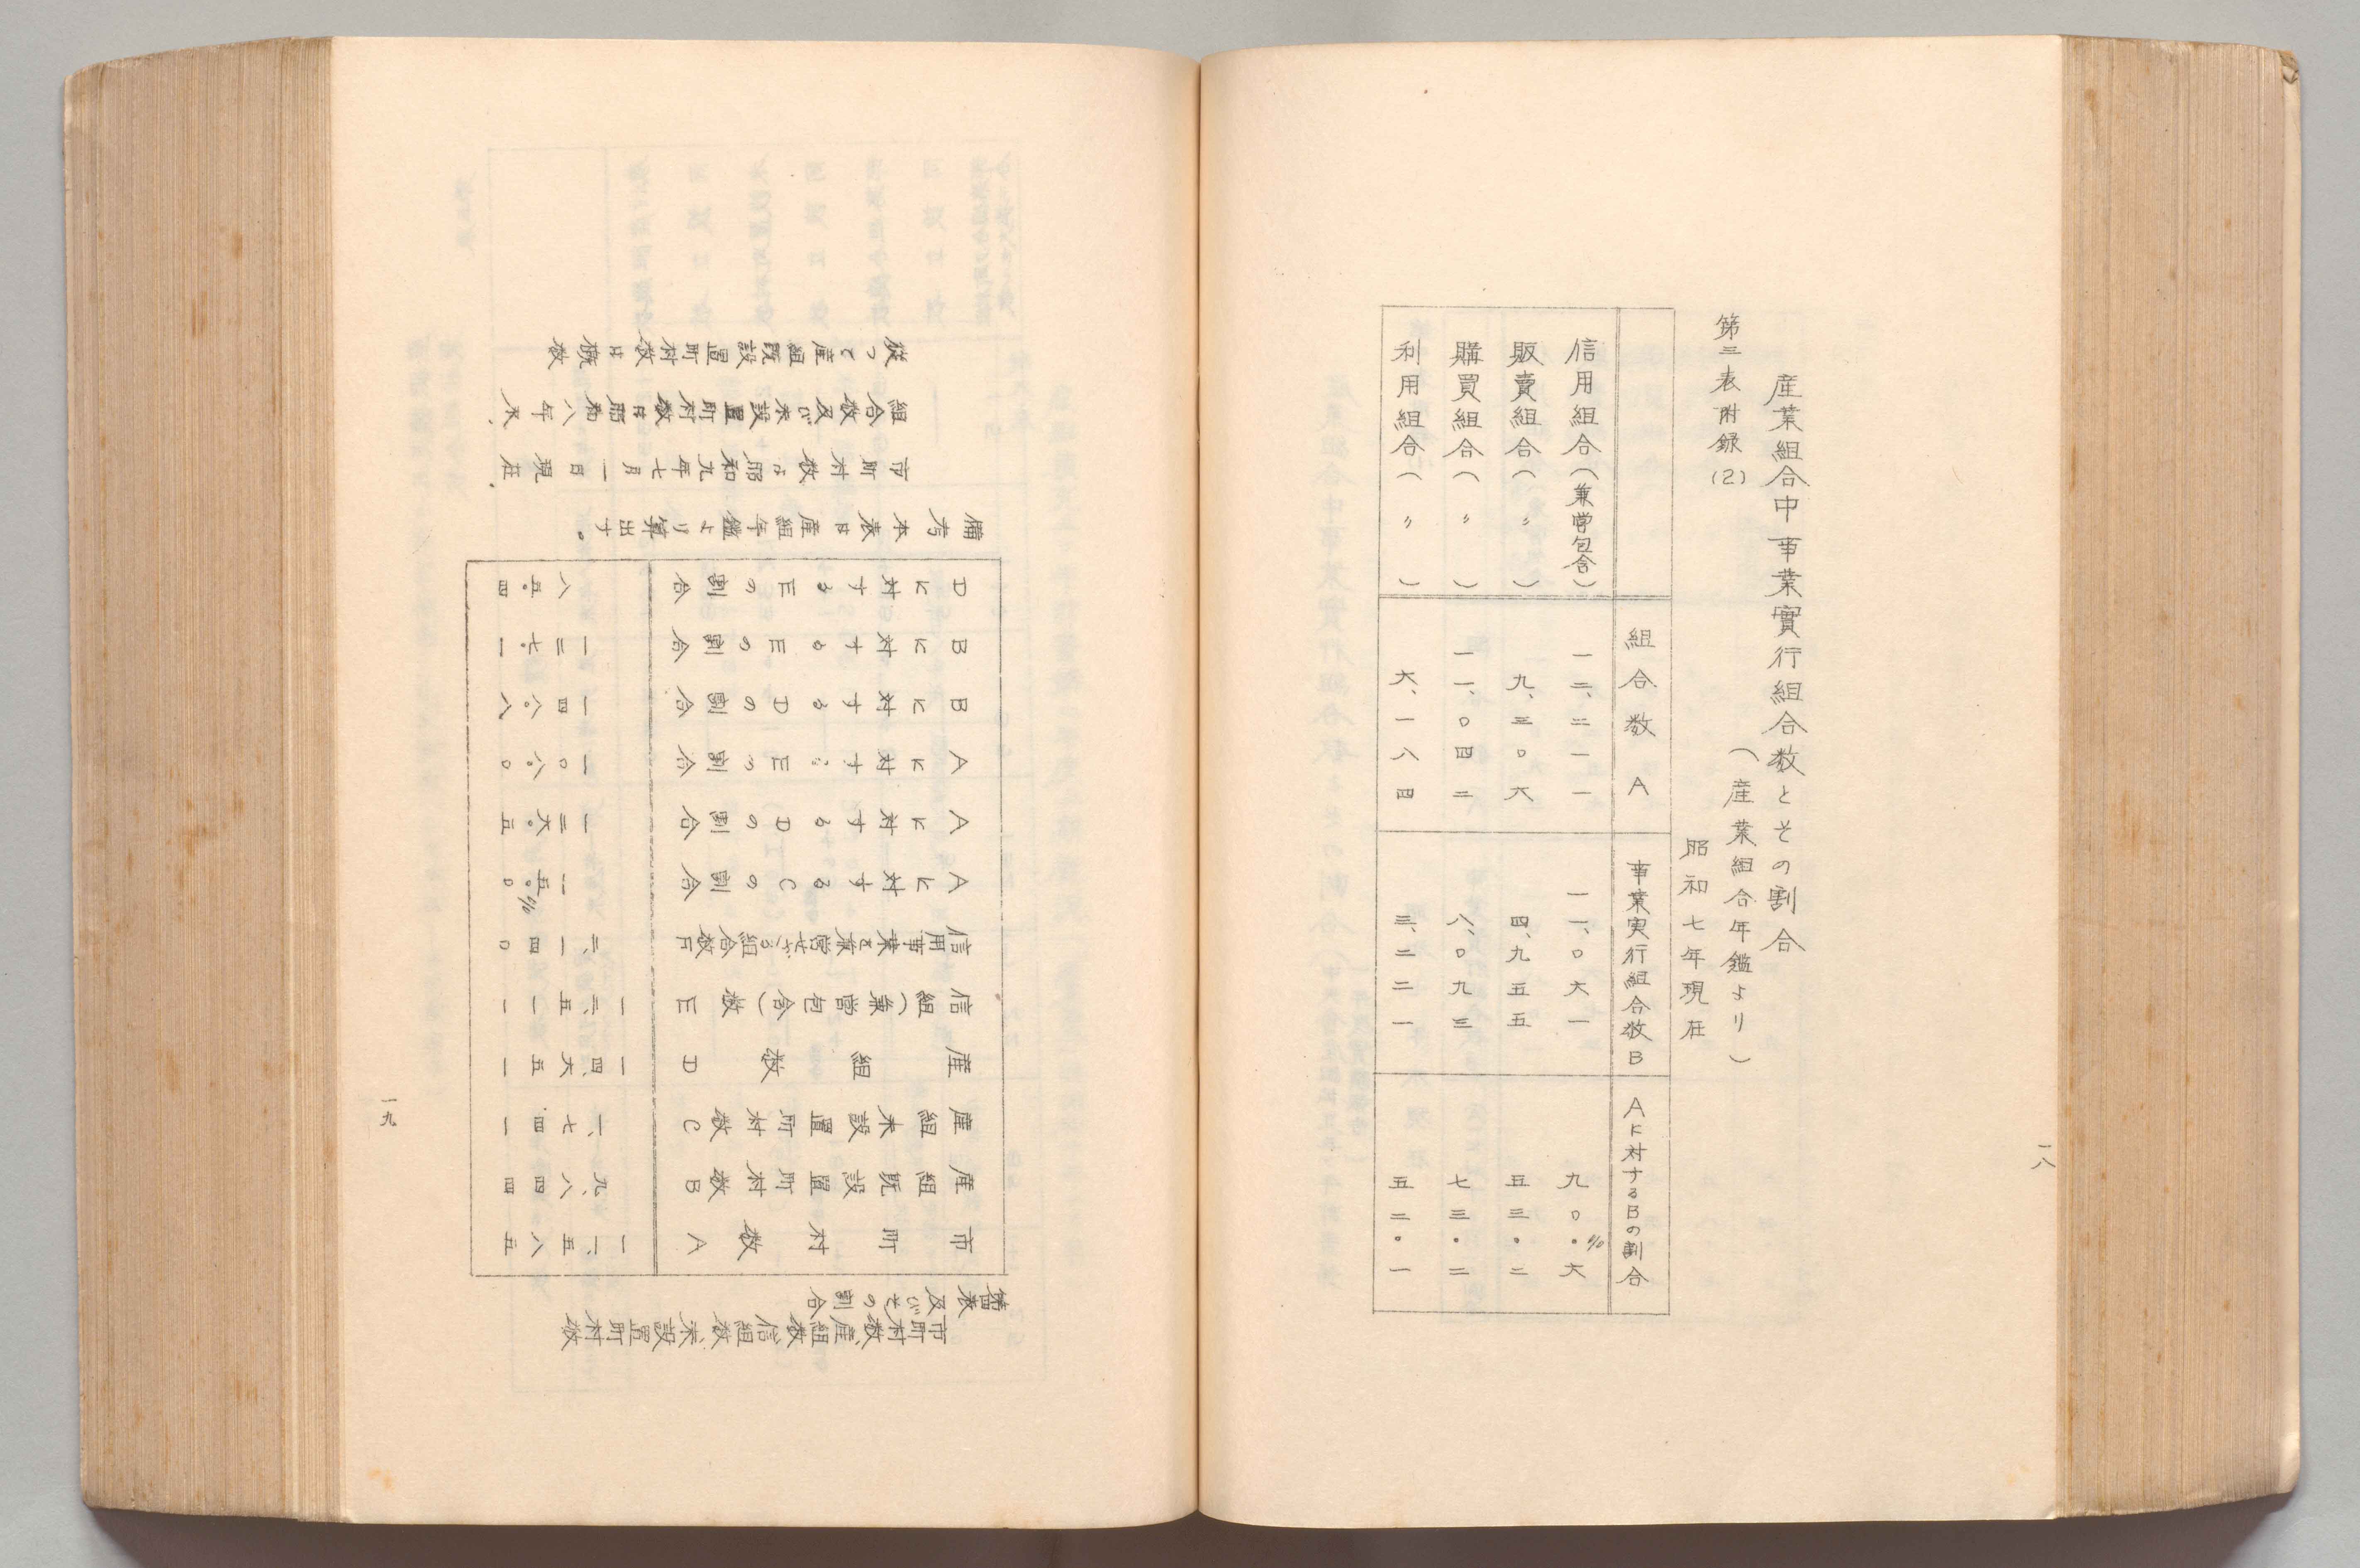 産業組合中事業實行組合数とその割合
第三表附録(2)
(産業組合年鑑より)
昭和七年現在
組合数A 事業実行組合数B Aに対するBの割合
信用組合(兼営包含) 一二、二一一 一一、〇六一 九〇・六%
販賣組合(〃) 九、三〇六 四、九五五 五三・二
購買組合(〃) 一一、〇四二 八、〇九三 七三・二
利用組合(〃) 六、一八四 三、二二一 五二・一
一八
第四表
市町村数、産組数、信組数、未設置町村数
及びその割合
市町村数A 一一、五八五
産組既設置町村数B 九、八四四
産組未設置町村数C 一、七四一
産組数D 一四、六五一
信組(兼営包含)数E 一二、五一一
信用事業を兼営せざる組合数F 二、一四〇
Aに対するCの割合 一五・〇%
Aに対するDの割合 一二六・五
Aに対するEの割合 一〇八・〇
Bに対するDの割合 一四八・八
Bに対するEの割合 一二七・一
Dに対するEの割合 八五・四
備考 本表は産組年鑑より算出す。
市町村数は昭和九年七月一日現在、
組合数及び未設置町村数は昭和八年末、
従つて産組既設置町村数は概数
一九